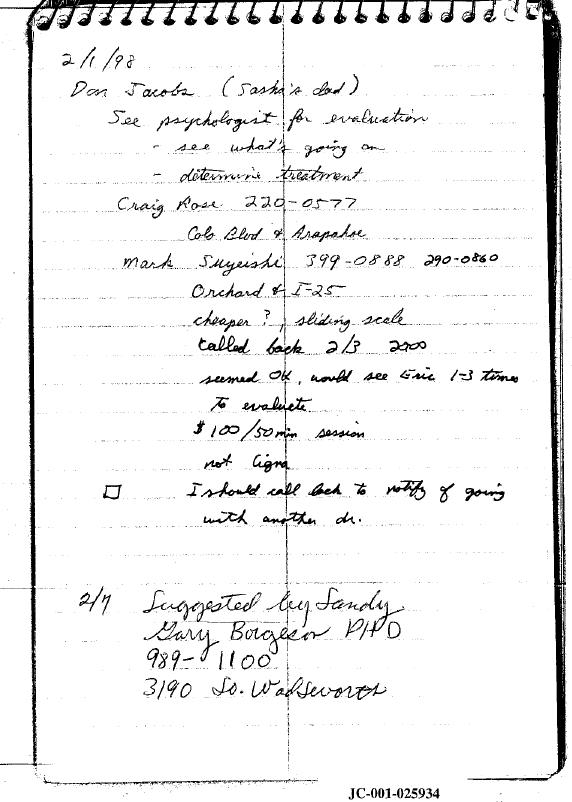 2/1/98
Don Jacobs (Sasha's dad)
See psychologist for evaluation
- see what's going on
- determine treatment
Craig Rose 220-0577
Colo Blvd & Arapahoe
Mark Suyeishi 399-0888 290-0860
Orchard & I-25
cheaper?, sliding scale
called back 2/3 2000
seemed OK, would see Eric 1-3 times
to evaluate
$100/50 min session
not Cigna
□ I should call back to notify of going
with another dr.
2/7 Suggested by Sandy
Gary Borgeson PHD
989-1100
3190 So. Wadsworth
JC-001-025934